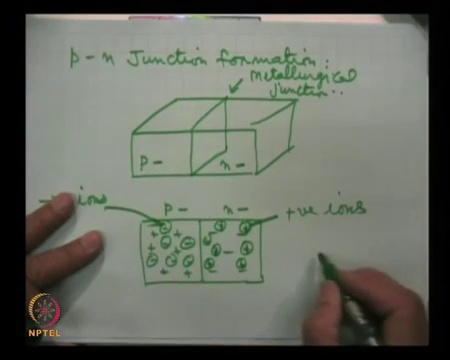 p - n Junction formation:
metallurgical
junction..
p - n -
ions
p - n -
+ve ions
NPTEL